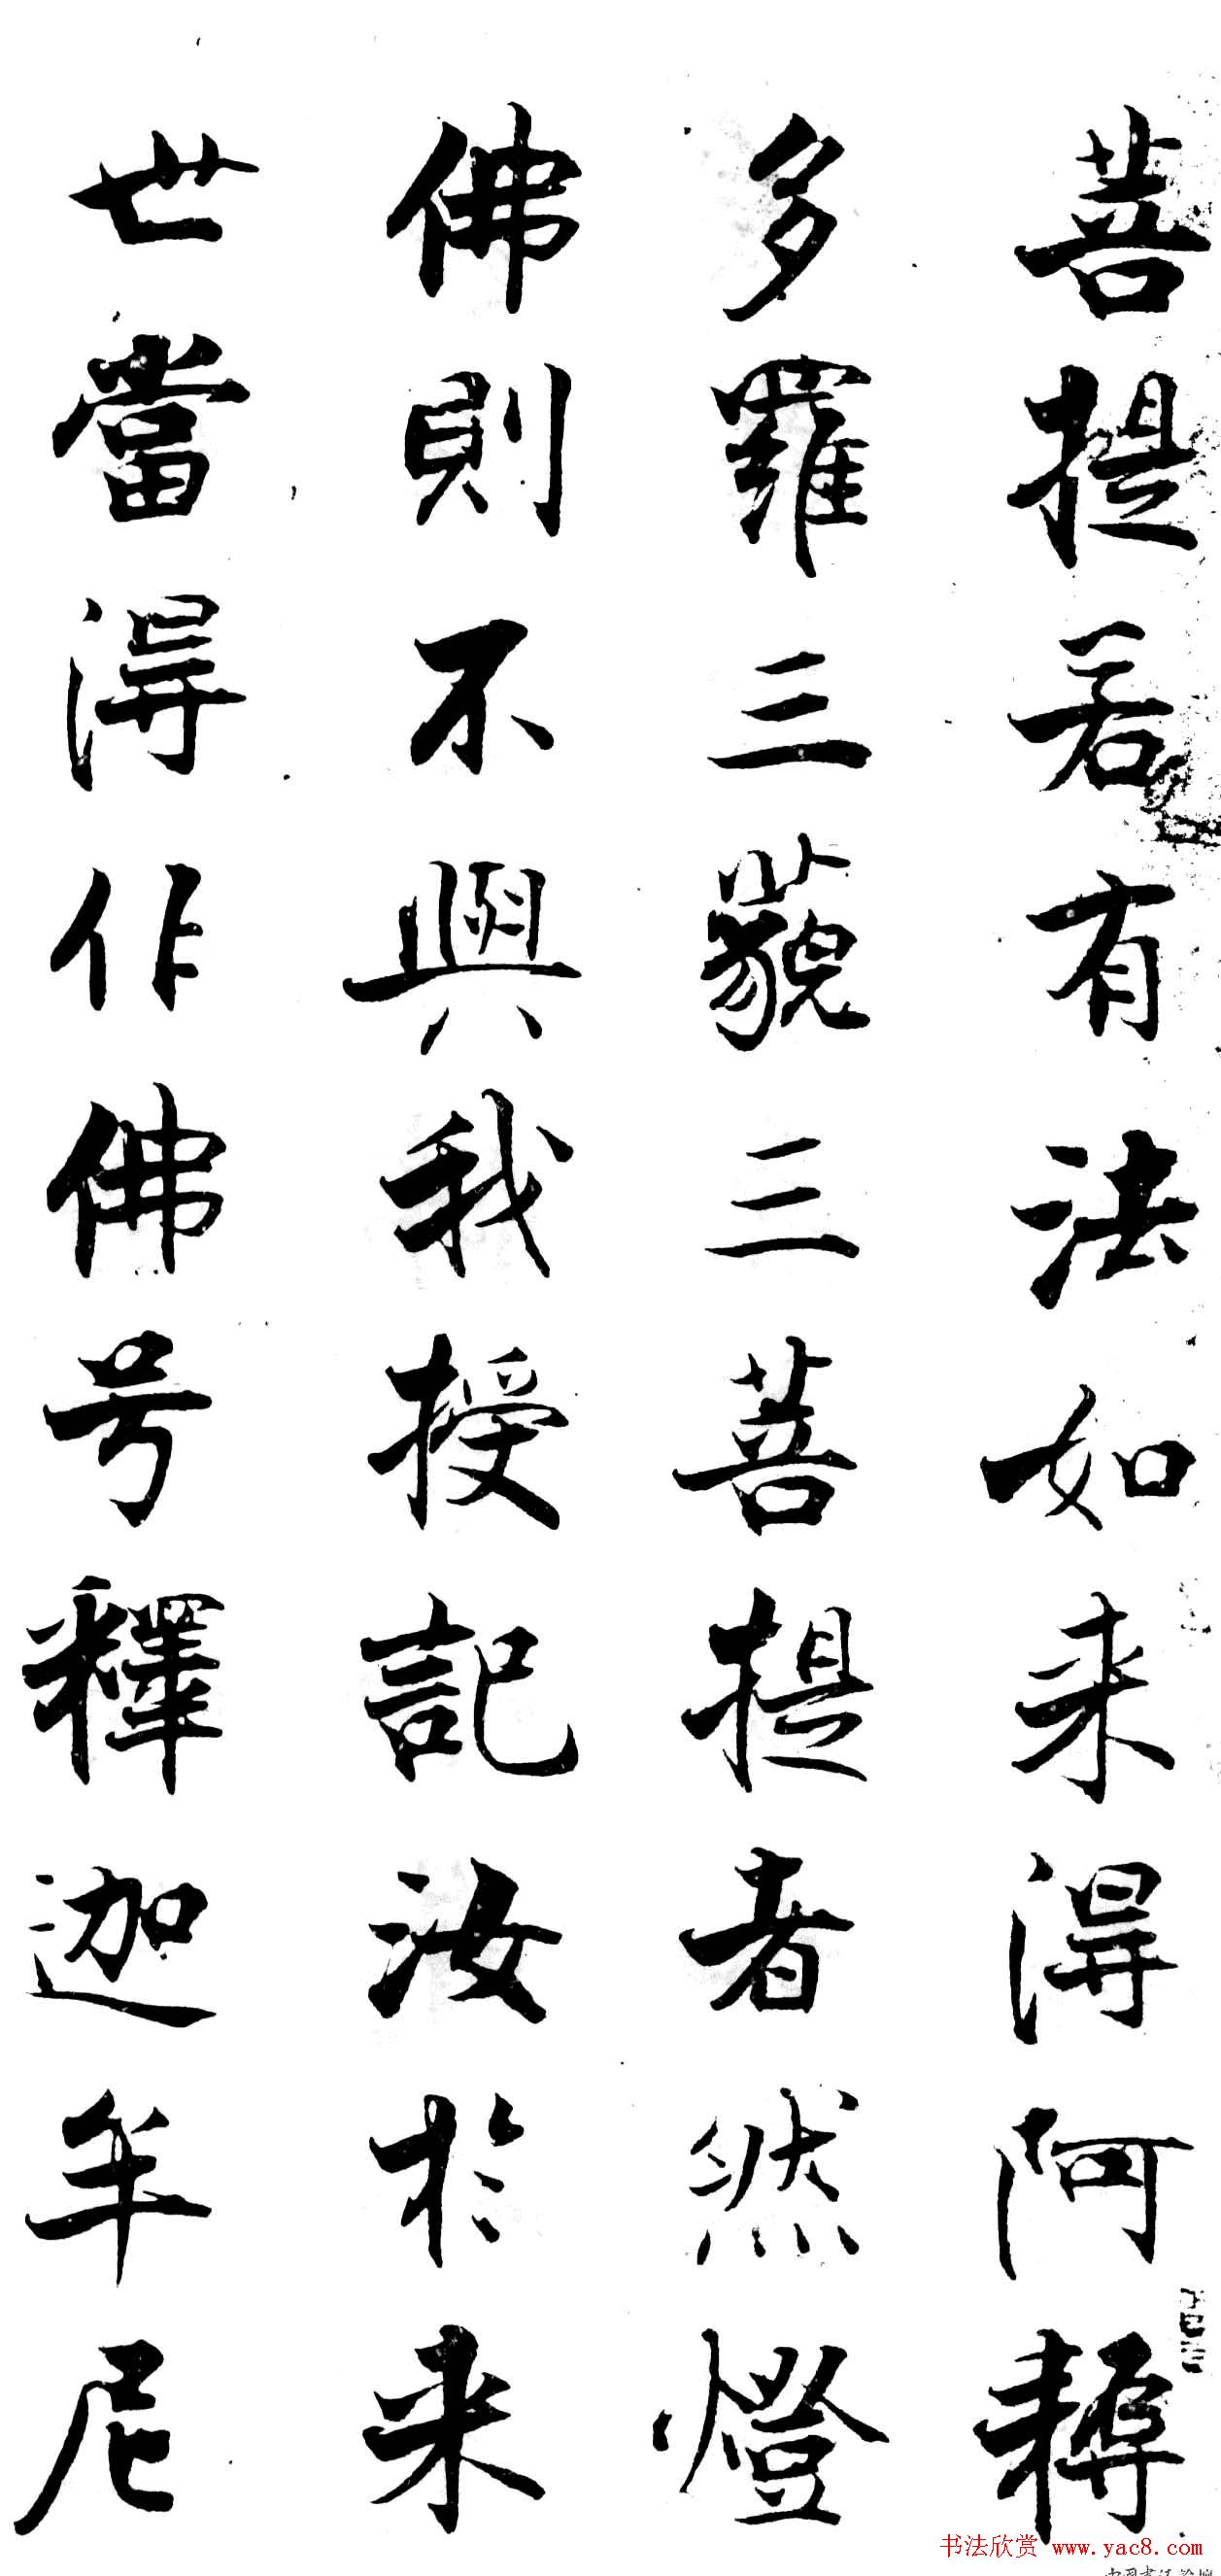 菩提若有法如来得阿耨
多羅三藐三菩提者然燈
佛則不與我授記汝於来
世當得作佛号釋迦牟尼
书法欣赏 www.yac8.com